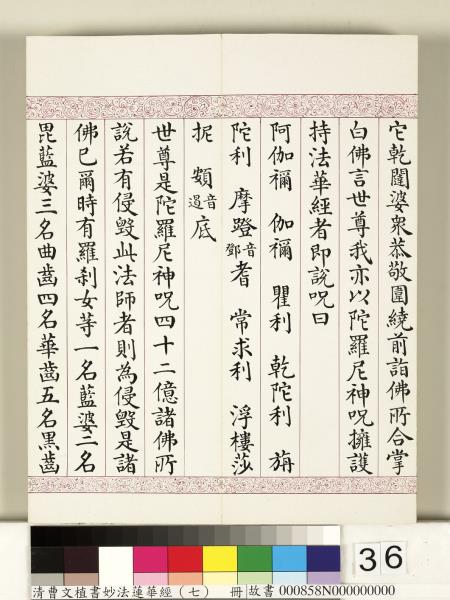 它乾闥婆衆恭敬圍繞前詣佛所合掌
白佛言世尊我亦以陀羅尼神呪擁護
持法華經者即說呪曰
阿伽禰 伽禰 瞿利 乾陀利 旃
陀利 摩蹬音鄧耆 常求利 浮樓莎
抳 頞音遏底
世尊是陀羅尼神呪四十二億諸佛所
說若有侵毀此法師者則為侵毀是諸
佛已爾時有羅刹女等一名藍婆二名
毘藍婆三名曲齒四名華齒五名黑齒
36
清曹文植書妙法蓮華經(七) 冊 故書 000858N000000000